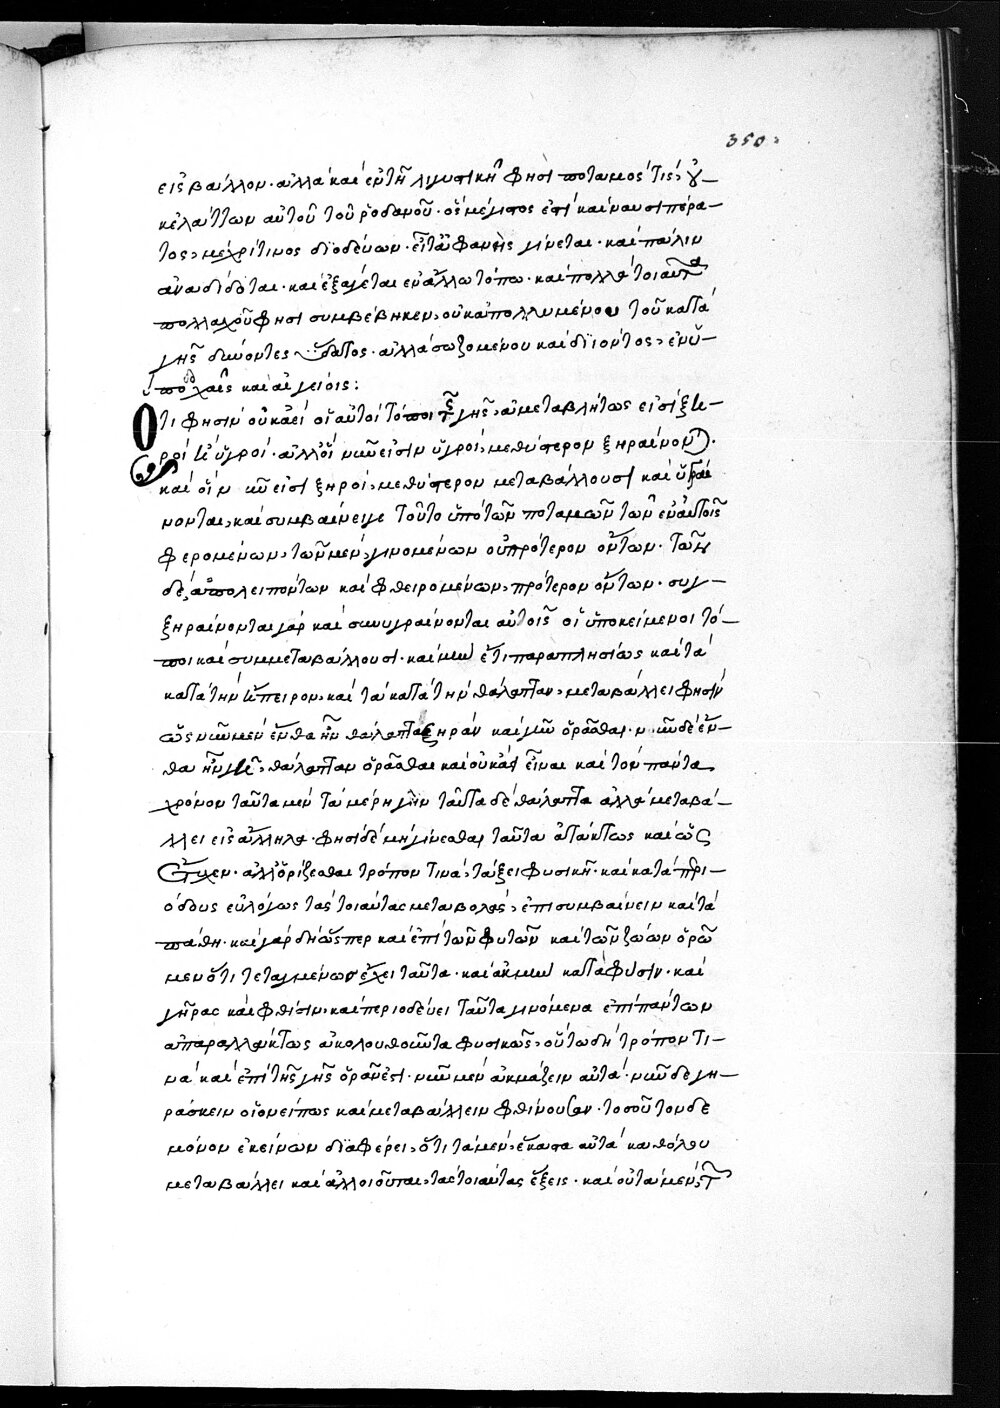 350
εἰσβάλλον· ἀλλὰ καὶ ἐν τῇ λιγυστικῇ φησὶ ποταμός τις, οὐ-
κ ἐλάττων αὐτοῦ τοῦ ῥοδανοῦ· ὃς μέγιστος ἐστὶ καὶ ναυσιπέρα-
τος, μέχρι τινὸς διοδεύων· εἶτα ἀφανὴς γίνεται· καὶ πάλιν
ἀναδίδοται· καὶ ἐξάγεται ἐν ἄλλω τόπω· καὶ πολλὰ τοιαῦτα
πολλαχοῦ φησι συμβέβηκεν, οὐκ ἀπολλυμένου τοῦ κατὰ
γῆς δύνοντος ὕδατος· ἀλλὰ σωζομένου καὶ διϊόντος, ἐν ὑ-
ποδοχαῖς καὶ αἰγείοις:
Ὅτι φησὶν οὐκ ἀεὶ οἱ αὐτοὶ τόποι τῆς γῆς, ἀμεταβλήτως εἰσὶ ξη-
ροὶ ἢ ὑγροί· ἀλλ' οἳ νῦν εἰσιν ὑγροί, μεθύστερον ξηραίνονται·
καὶ οἳ νῦν εἰσὶ ξηροί, μεθύστερον μεταβάλλουσι καὶ ὑγραί
νονται, καὶ συμβαίνει γε τοῦτο ὑπὸ τῶν ποταμῶν τῶν ἐν αὐτοῖς
φερομένων, τῶν μὲν, γινομένων οὐ πρότερον ὄντων· τῶν
δὲ, ἀπολειπόντων καὶ φθειρομένων, πρότερον ὄντων· συγ-
ξηραίνονται γὰρ καὶ συνυγραίνονται αὐτοῖς οἱ ὑποκείμενοι τό-
ποι καὶ συμμεταβάλλουσι· καὶ μὴν ἔτι παραπλησίως καὶ τὰ
κατὰ τὴν ἤπειρον, καὶ τὰ κατὰ τὴν θάλατταν, μεταβάλλει φησὶν
ὡς νῦν μὲν ἔνθα ἦν θάλαττα ξηρὰν καὶ γῆν ὁρᾶσθαι· νῦν δὲ ἔν-
θα ἦν γῆ, θάλατταν ὁρᾶσθαι καὶ οὐκ ἀεὶ εἶναι κατὰ τὸν πάντα
χρόνον ταῦτα μὲν τὰ μέρη γῆν ταῦτα δὲ θάλαττα ἀλλὰ μεταβά-
λλει εἰς ἄλληλα· φησὶ δὲ μὴ γίνεσθαι ταῦτα ἀτάκτως καὶ ὡς
ἔτυχεν· ἀλλ' ὁρίζεσθαι τρόπον τινά, τάξει φυσικῆ· καὶ κατὰ περι-
όδους εὐλόγως τὰς τοιαύτας μεταβολὰς, ἐπισυμβαίνειν καὶ τὰ
πάθη· καὶ γὰρ δὴ ὥσπερ καὶ ἐπὶ τῶν φυτῶν καὶ τῶν ζώων ὁρῶ
μεν ὅτι τεταγμένως ἔχει ταῦτα· καὶ ἀκμὴν κατὰ φύσιν· καὶ
γῆρας καὶ φθίσιν, καὶ περιοδεύει ταῦτα γινόμενα ἐπὶ πάντων
ἀπαραλλάκτως ἀκολουθοῦντα φυσικῶς, οὕτω δὴ τρόπον τι-
νὰ καὶ ἐπὶ τῆς γῆς ὁρᾶν ἐστι· νῦν μὲν ἀκμάζειν αὐτά· νῦν δὲ γη-
ράσκειν οἱονείπως καὶ μεταβάλλειν φθίνουσαν· τοσοῦτον δὲ
μόνον ἐκείνων διαφέρει, ὅτι τὰ μὲν, ἕκαστα αὐτὰ καθόλου
μεταβάλλει καὶ ἀλλοιοῦται, τὰς τοιαύτας ἕξεις· καὶ οὐ τὰ μὲν,